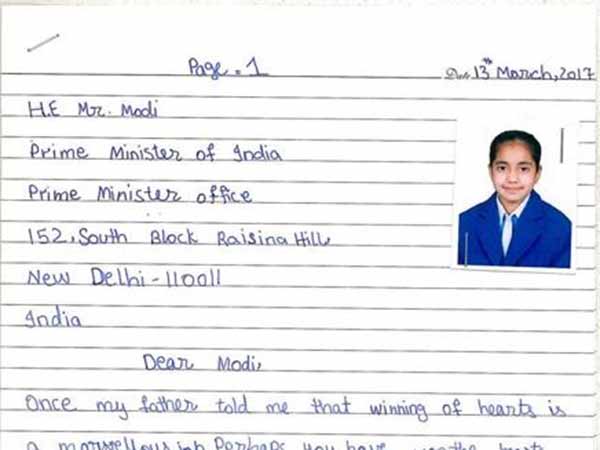 Page. 1
Date 13th March, 2017
H.E Mr. Modi
Prime Minister of India
Prime Minister office
152, South Block Raisina Hill,
New Delhi - 110011
India
Dear Modi,
Once my father told me that winning of hearts is
a marvellous job Perhaps you have hearts